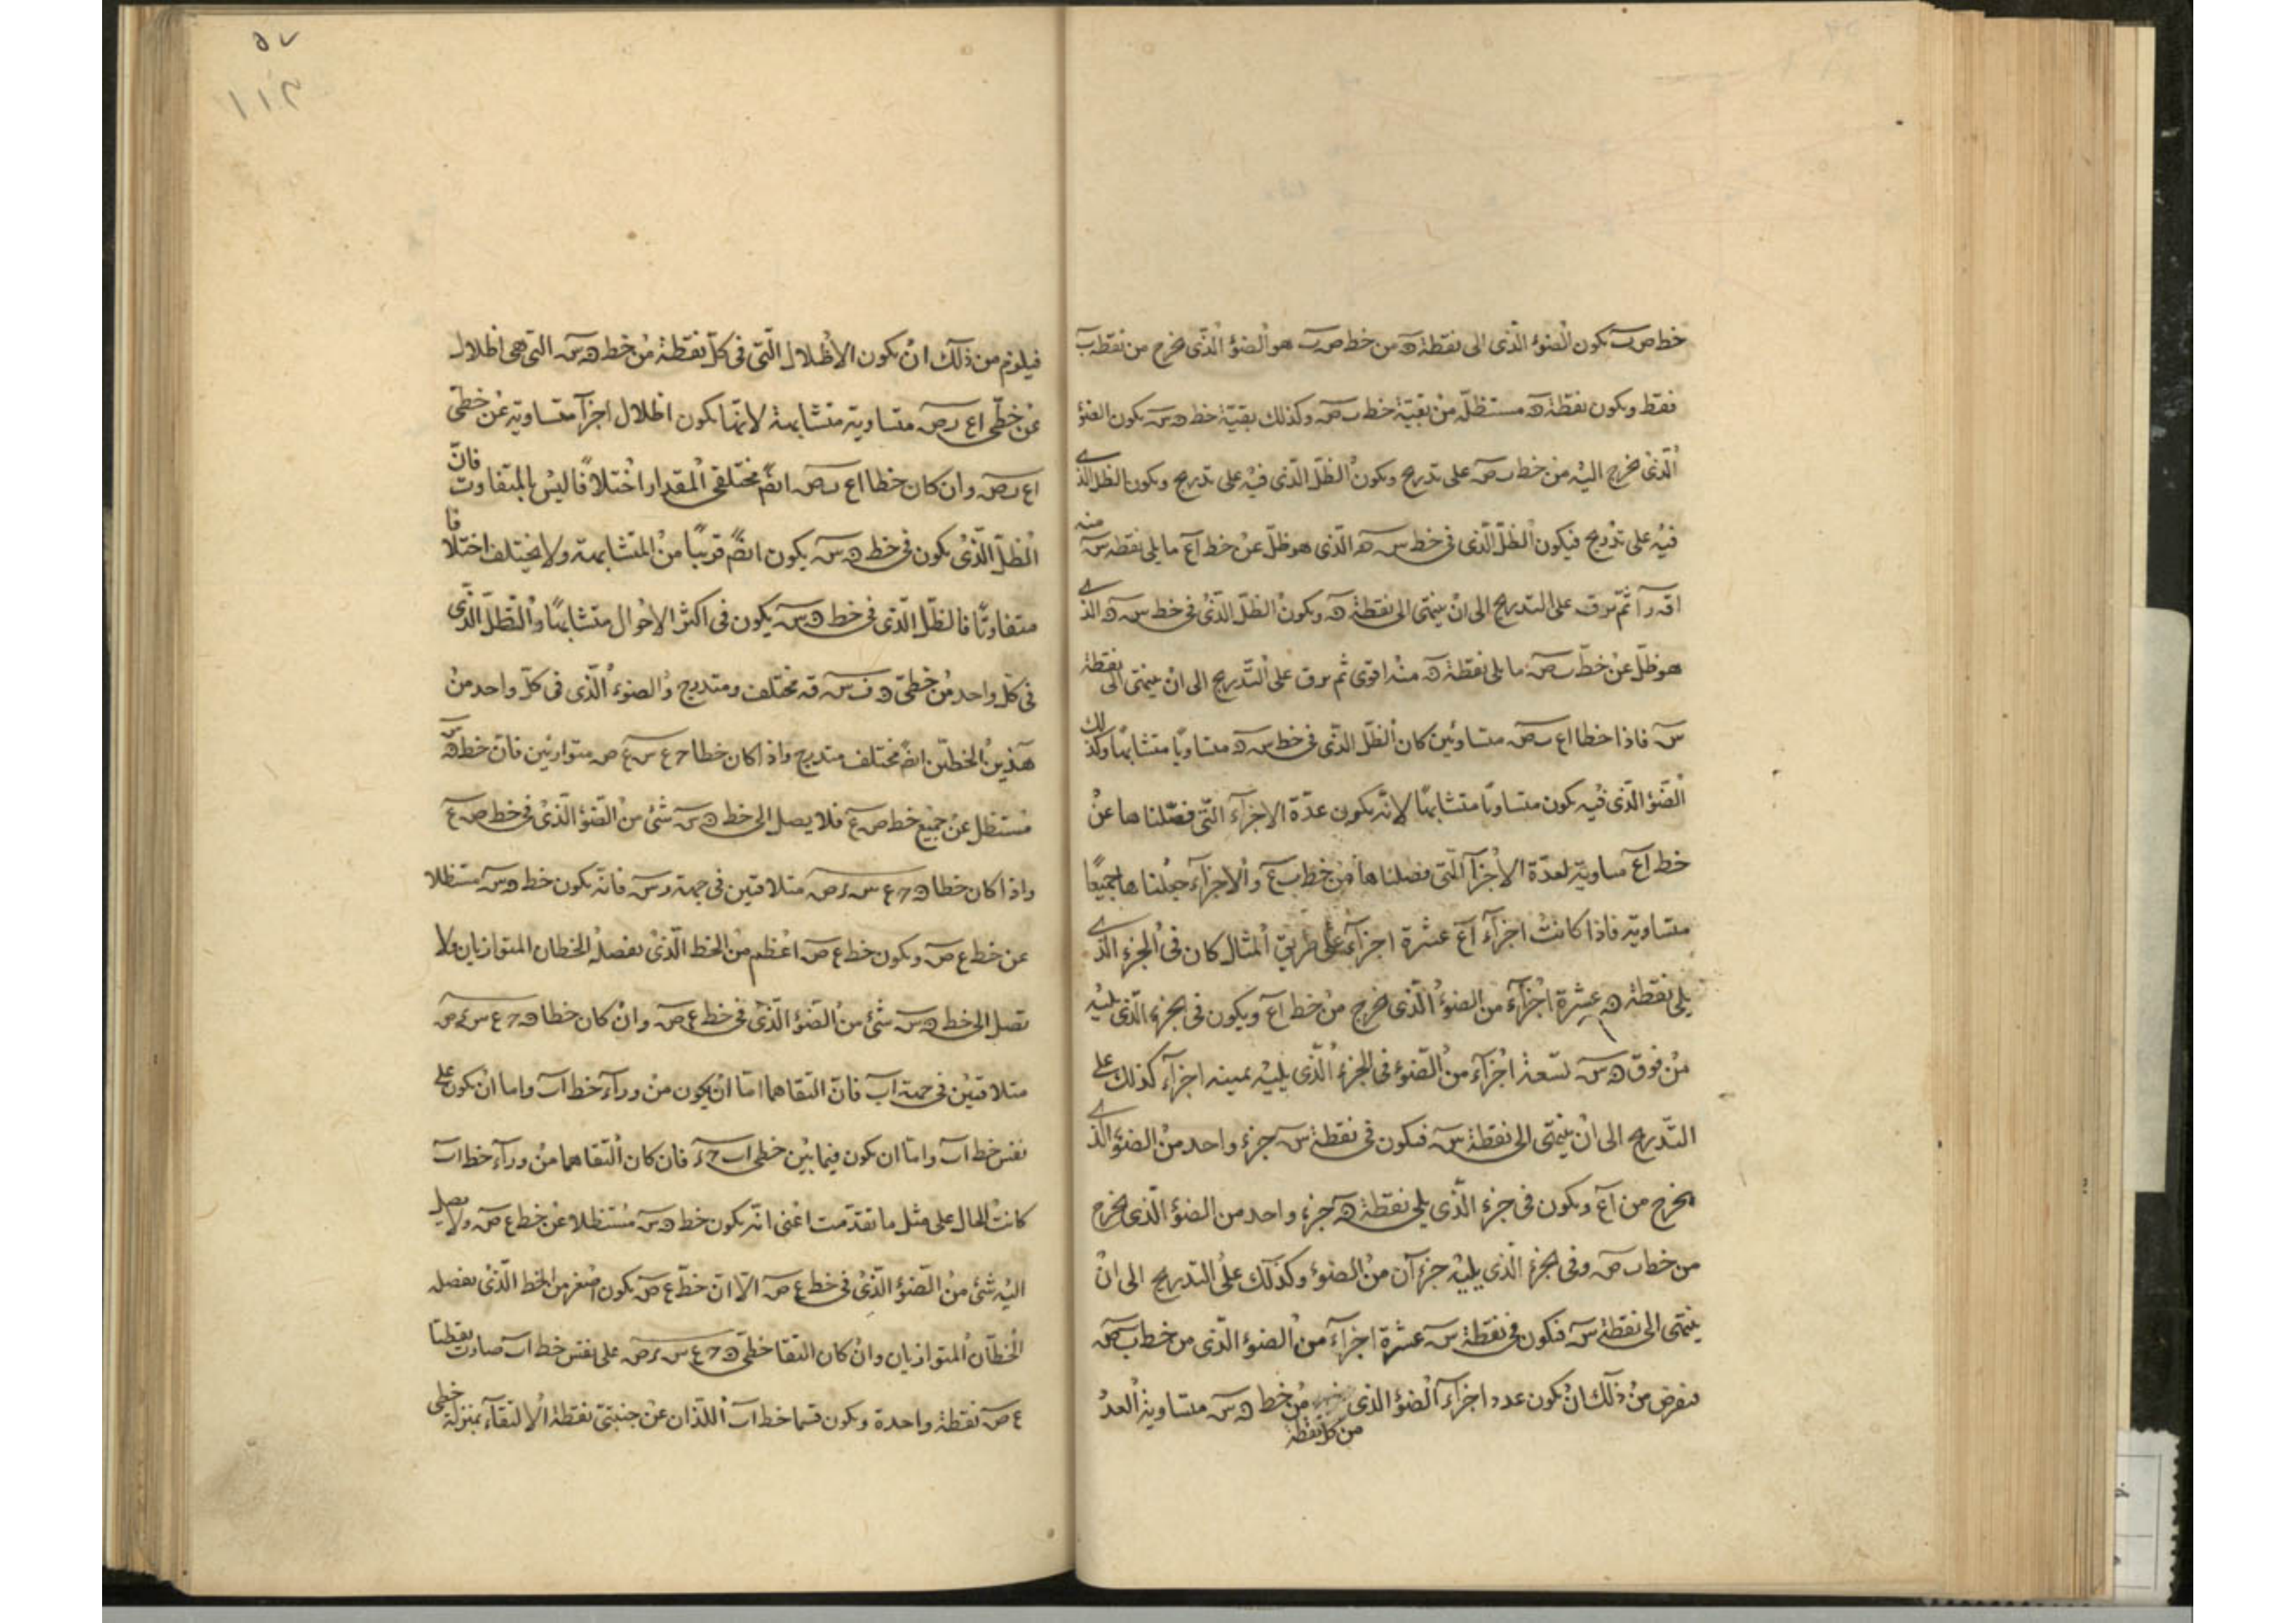 خط ص ب يكون الضوء الذى الى نقطة ه من خط ص ب هو الضوء الذى يخرج من نقطة ب
فقط ويكون نقطة ه مستظلة من بقية خط ب ص وكذلك بقية خط ه س يكون الضوء
الذى يخرج اليه من خط ب ص على تدريج ويكون الظل الذى فيه على تدريج ويكون الظل الذى
فيه على تدريج فيكون الظل الذى فى خط س ه الذى هو ظل عن خط ا ع ما يلى نقطة س منه
ثم يرق على التدريج الى ان ينتهى الى نقطة ه ويكون الظل الذى فى خط س ه الذى
هو ظل عن خط ب ص ما يلى نقطة ه منه اقوى ثم يرق على التدريج الى ان ينتهى الى نقطة
س فاذا خطا ا ع ب ص متساويين كان الظل الذى فى خط س ه متساويا متشابها وكذلك
الضوء الذى فيه يكون متساويا متشابها لانه يكون عدة الاجزاء التى فصلناها عن
خط ا ع مساوية لعدة الاجزآ التى فصلناها من خط ب ع والاجزاء جعلناها جميعا
متساوية فاذا كانت اجزآء ا ع عشرة اجزآء على طريق المثال كان فى الجزء الذى
يلى نقطة ه عشرة اجزآء من الضوء الذى يخرج من خط ا ع ويكون فى الجزء الذى يليه
من فوق ه س تسعة اجزآء من الضوء فى الجزء الذى يليه اجزآء كذلك على
التدريج الى ان ينتهى الى نقطة س فيكون فى نقطة س جزء واحد من الضوء الذى
يخرج من ا ع ويكون فى جزء الذى يلى نقطة ه جزء واحد من الضوء الذى يخرج
من خط ب ص وفى الجزء الذى يليه جزءآن من الضوء وكذلك على التدريج الى ان
ينتهى الى نقطة س فيكون فى نقطة س عشرة اجزآء من الضوء الذى من خط ب ص
من ذلك ان يكون عدد اجزآء الضوء الذى من خط ه س متساوية العدد
من كل نقطة
٥٧
١١٢
فيلزم من ذلك ان يكون الاظلال التى فى كل نقطة من خط ه س التى هى اظلال
عن خطى ا ع ب ص متساوية متشابهة لانها يكون اظلال اجزآ متساوية عن خطى
ا ع ب ص وان كان خطا ا ع ب ص ايضً مختلفى المقدار اختلافًا ليس بالمتفاوت فان
الظل الذى يكون فى خط ه س يكون ايضً قريبًا من المتشابهة ولا يختلف اختلافا
متفاوتًا فالظل الذى فى خط ه س يكون فى اكثر الاحوال متشابهًا والظل الذى
فى كل واحد من خطى ه ف س ق مختلف ومتدرج والضوء الذى فى كل واحد من
هذين الخطين ايضً مختلف متدرج واذا كان خطا ح ع س ع ص متوازيين فان خط ه س
مستظل عن جميع خط ص ع فلا يصل الى خط ه س شئ من الضوء الذى فى خط ص ع
واذا كان خطا ه ح ع س ر ص متلاقيين فى جهة ر س فانه يكون خط ه س مستظلا
عن خط ع ص ويكون خط ع ص اعظم من الخط الذى يفصله الخطان المتوازيان ولا
تصل الى خط ه س شئ من الضوء الذى فى خط ع ص وان كان خطا ه ح ع س ر ص
متلاقيين فى جهة ا ب فان التقاهما اما ان يكون من ورآء خط ا ب واما ان يكون على
نفس خط ا ب واما ان يكون فيما بين خطى ا ب ح ء فان كان التقاهما من ورآء خط ا ب
كانت الحال على مثل ما تقدمت اعنى انه يكون خط ه س مستظلا عن خط ع ص ولا يصل
اليه شئ من الضوء الذى فى خط ع ص الا ان خط ع ص يكون اصغر من الخط الذى يفصله
الخطان المتوازيان وان كان التقا خطى ه ح ع س ر ص على نفس خط ا ب صارت نقطتا
ع ص نقطة واحدة ويكون قسما خط ا ب اللذان عن جنبتى نقطة الالتقآء بمنزلة خطى